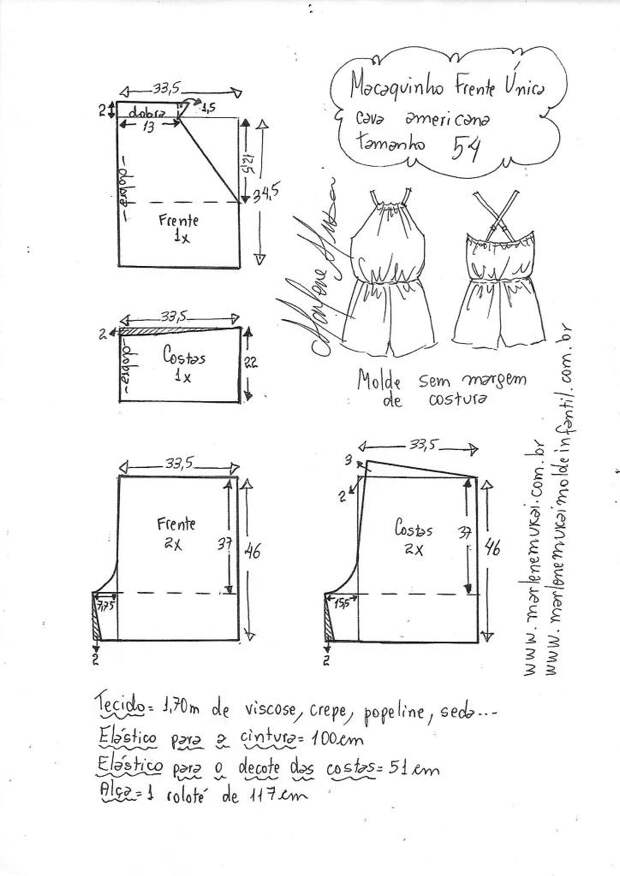 Macaquinho Frente Única
cava americana
tamanho 54
33,5
2
dobra
1,5
13
- dobra -
12,5
34,5
Frente
1x
Marlene Mukai
33,5
2
- dobra -
Costas
1x
22
Molde sem margem
de costura
www.marlenemukai.com.br
www.marlenemukaimoldeinfantil.com.br
33,5
Frente
2x
37
46
7,75
2
33,5
3
2
Costas
2x
37
46
15,5
2
Tecido = 1,70m de viscose, crepe, popeline, seda...
Elástico para a cintura = 100cm
Elástico para o decote das costas = 51cm
Alça = 1 roloté de 117cm